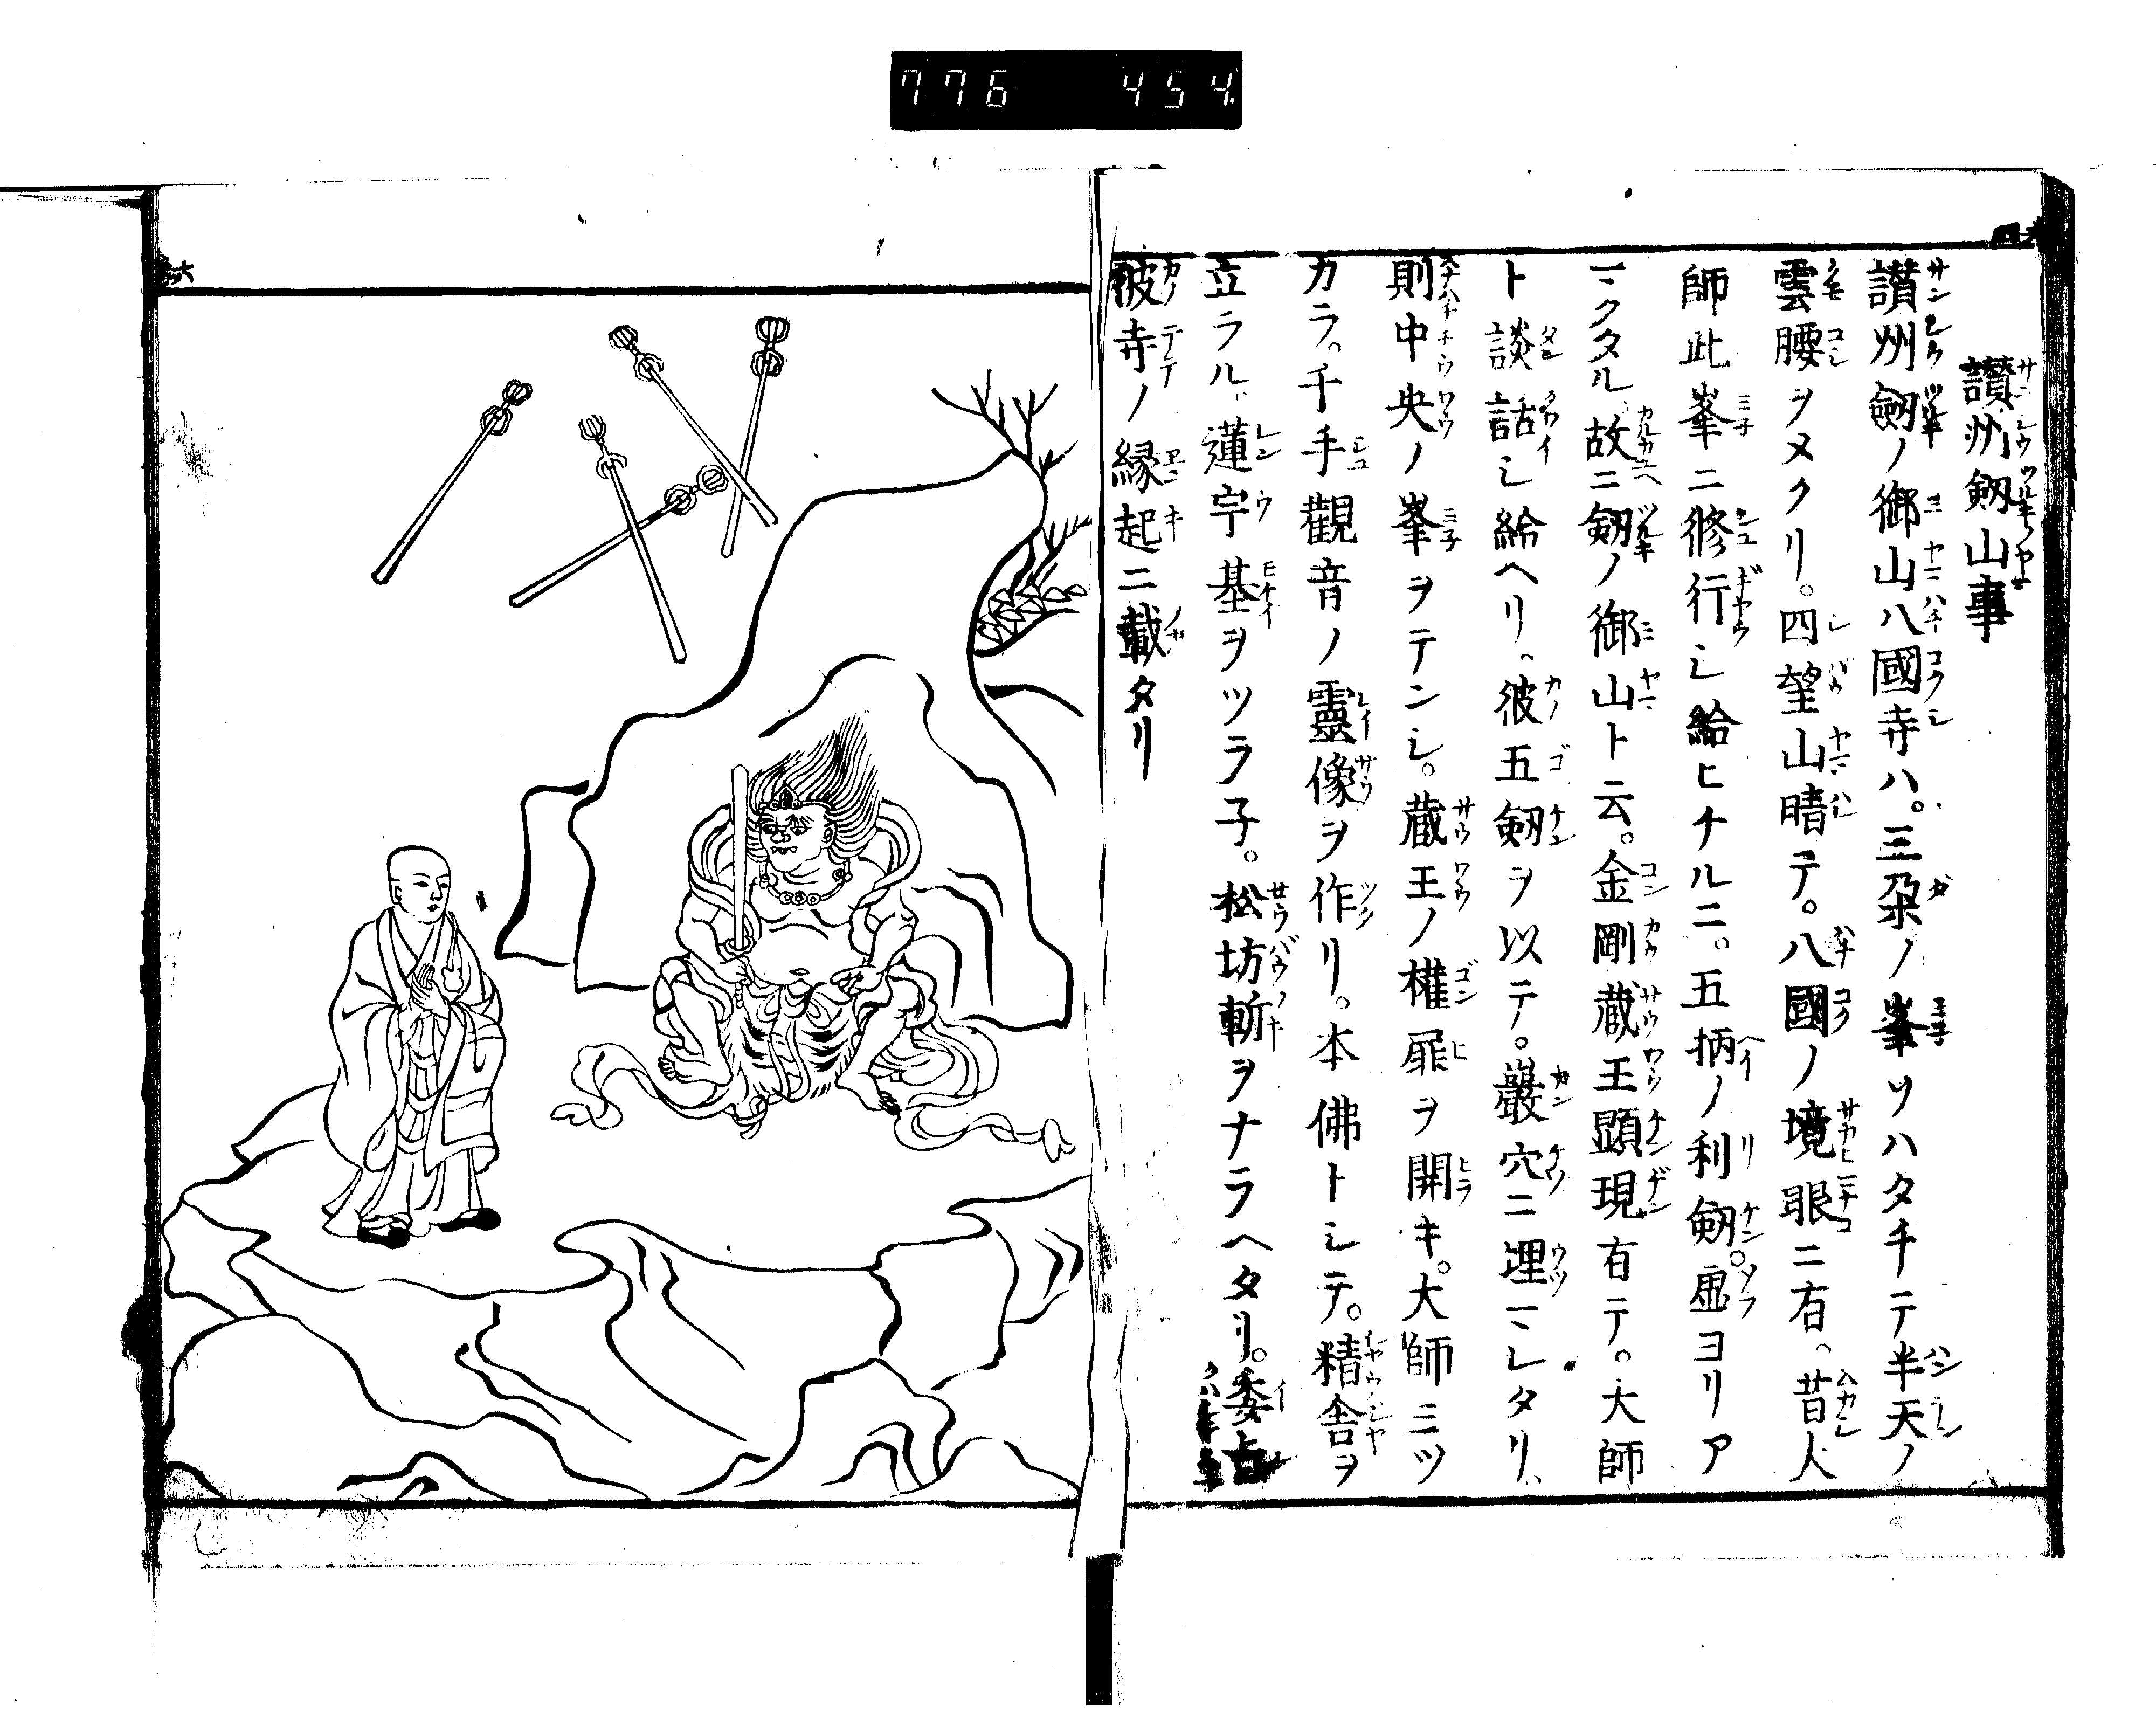 776 454
讃州剱山事
讃州劔ノ御山八國寺ハ。三朶ノ峯ソハタチテ半天ノ
雲腰ヲヌクリ。四望山晴テ。八國ノ境眼ニ有。昔大
師此峯ニ修行シ給ヒケルニ。五柄ノ利剱。虚ヨリア
マクタル。故ニ剱ノ御山ト云。金剛蔵王顕現有テ。大師
ト談話シ給ヘリ。彼五剱ヲ以テ。巖穴ニ埋マレタリ。
則中央ノ峯ヲテンシ。蔵王ノ權扉ヲ開キ。大師ミツ
カラ。千手觀音ノ靈像ヲ作リ。本佛トシテ。精舎ヲ
立ラル。蓮宇基ヲツラ子。松坊斬ヲナラヘタリ。委
彼寺ノ縁起ニ載タリ
六